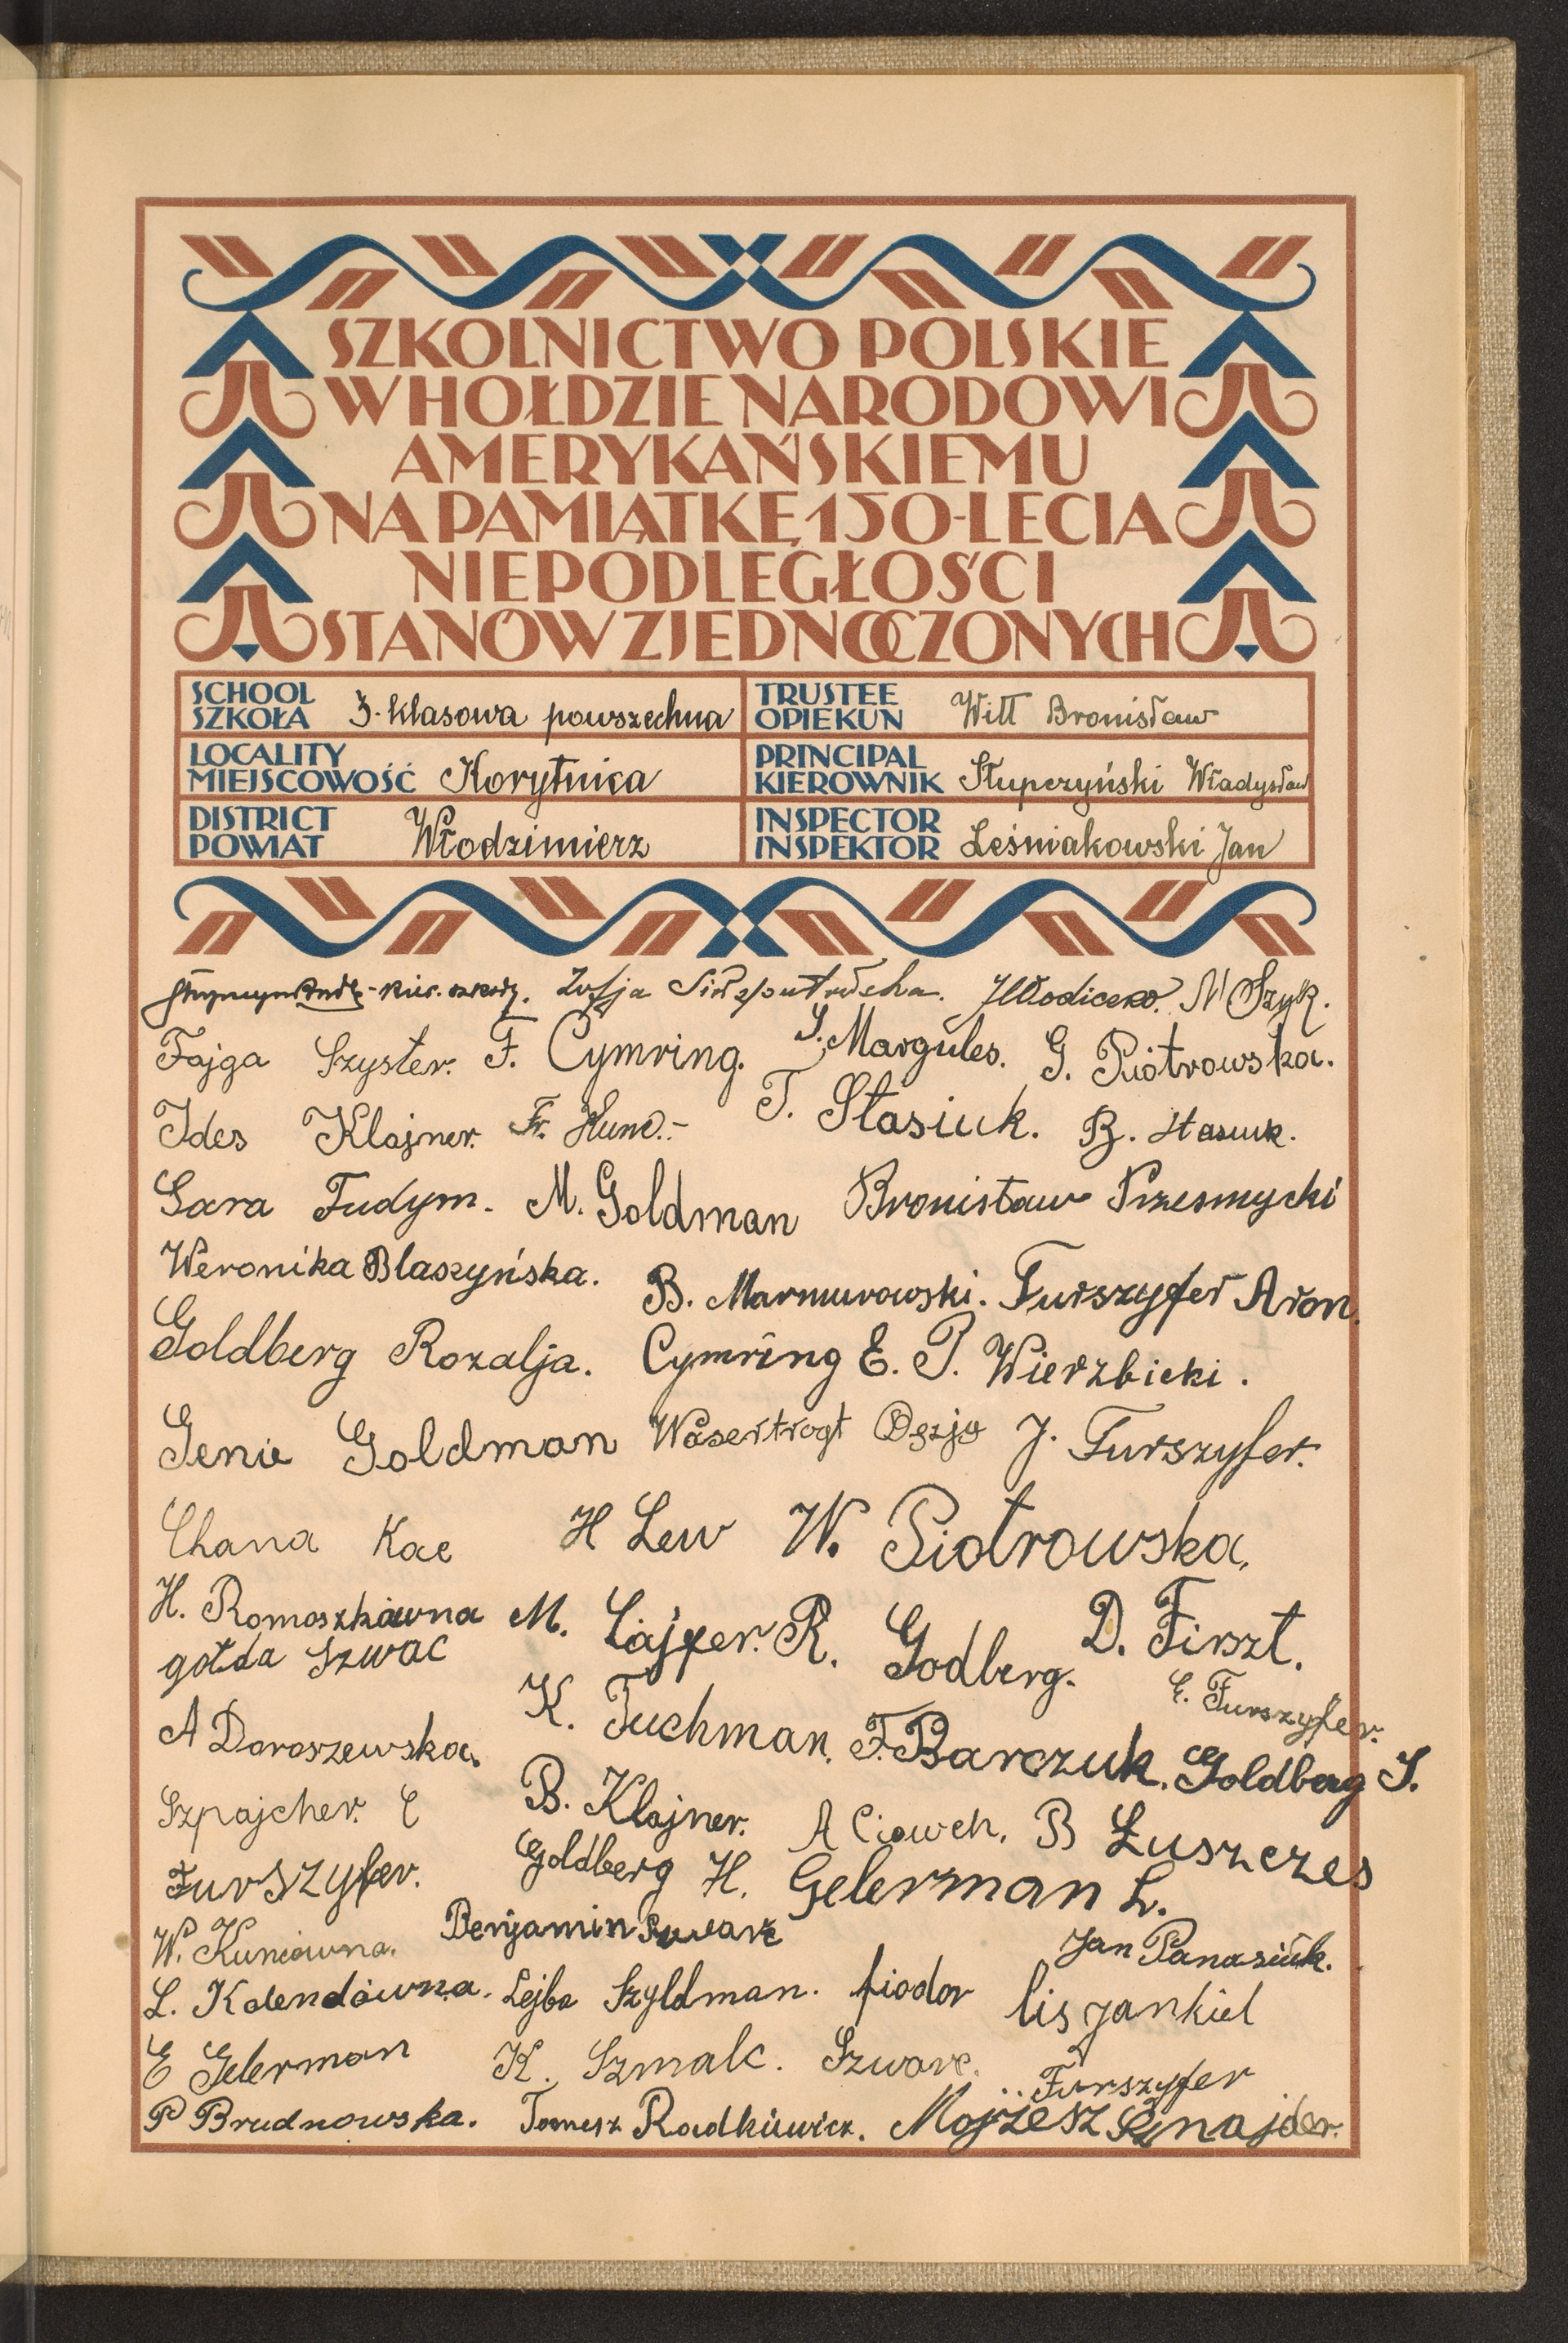 SZKOLNICTWO POLSKIE
W HOŁDZIE NARODOWI
AMERYKAŃSKIEMU
NA PAMIĄTKĘ 150-LECIA
NIEPODLEGŁOŚCI
STANÓW ZJEDNOCZONYCH
SCHOOL
SZKOŁA 3-klasowa powszechna
TRUSTEE
OPIEKUN Witt Bronisław
LOCALITY
MIEJSCOWOŚĆ Korytnica
PRINCIPAL
KIEROWNIK Słupczyński Władysław
DISTRICT
POWIAT Włodzimierz
INSPECTOR
INSPEKTOR Leśniakowski Jan
Zofja N Szyk.
Fajga Szyster. F. Cymring. S. Margules. G. Piotrowska.
Ides Klajner. Fr. Kunc.- T. Stasiuk. B. Stasiuk.
Sara Fudym. M. Goldman Bronisław Przesmycki
Weronika Blaszyńska. B. Marmurowski. Furszyfer Aron.
Goldberg Rozalja. Cymring E. P. Wierzbicki.
Genie Goldman Wasertrogt J. Furszyfer.
Chana Kac H Lew W. Piotrowska.
H. Romaszkówna M. Lajfer. R. Godberg. D. Firszt.
gołda Szwac E. Furszyfer.
A Doroszewska. K. Tuchman. F. Barczuk. Goldberg S.
Szpajcher. C B. Klajner. A B Łuszczes
Furszyfer. Goldberg H. Gelerman L.
W. Kuncówna. Benjamin Szwarc Jan Panasiuk.
L. Kolendówna. Lejba Szyldman. fiodor lis Jankiel
E Gelerman K. Szmalc. Szwarc. Furszyfer
P Brudnowska. Tomesz Radkiewicz. Mojżesz Sznajder.